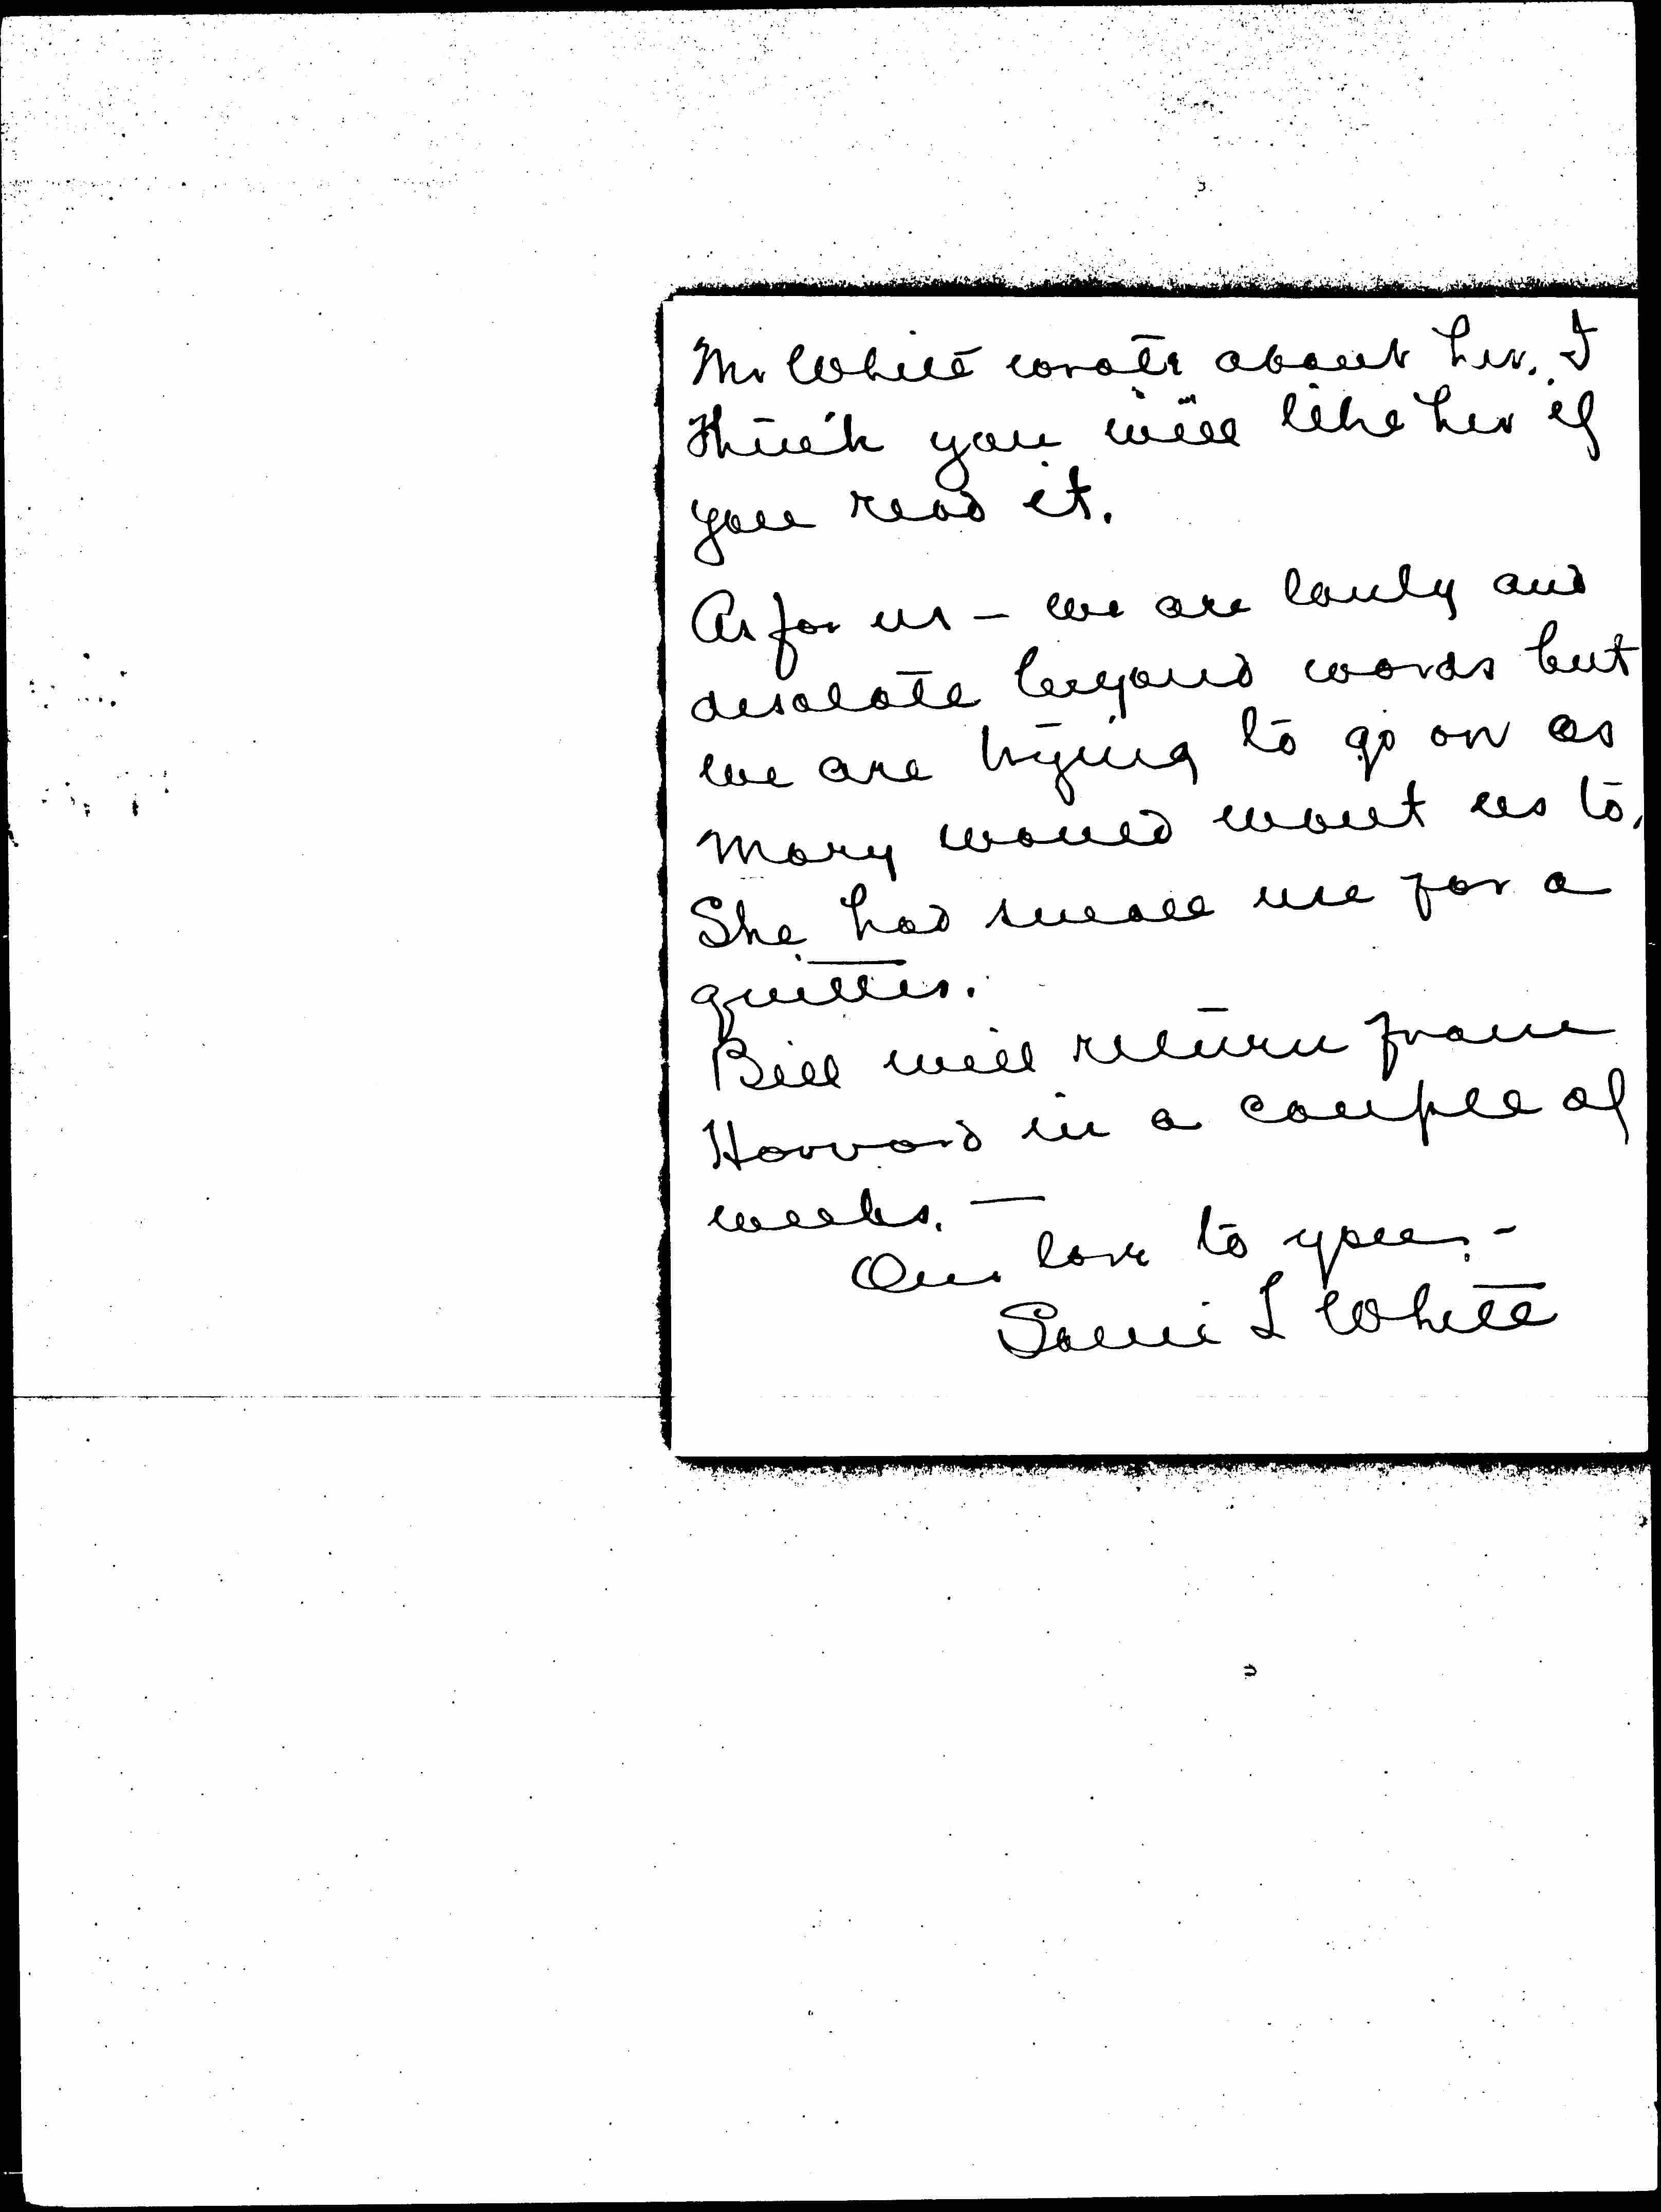 Mr White wrote about her. I
think you will like her if
you read it.
As for us – we are lonly and
desolate beyond words but
we are trying to go on as
Mary would want us to.
She had small use for a
quitter.
Bill will return from
Harvard in a couple of
weeks. —
Our love to you –
Sallie L White